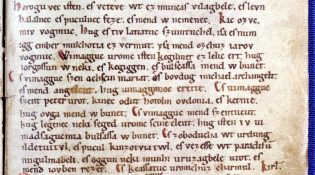 Horogu vec isten. es veteve wt ez munkas vilagbele. es levn
halalnec es puculnec feze. es mend w nemenec. Kic ozvc.
miv vogmuc. Hug es tiv latiatuv szumtuchel. isa es num
igg ember mulchotia ez vermut. ysa mend ozchuz iarov
vogmuc. Wimagguc uromc isten kegilmet ez lelic ert. hug
iorgossun w neki. es kegiggen. es bulscassa mend w bunet.
Es vimagguc szen achscin mariat. es bovdug michael archangelt.
es mend angelcut. hug uimaggonoc erette. Es uimagguc
szent peter urot. kinec odut hotolm ovdonia. es ketnie.
hug ovga mend w bunet. Es vimagguc mend szentucut.
hug legenec neki seged uromc scine eleut. hug isten iv ui
madsagucmia bulsassa w bunet. Es zoboducha wt urdung
ildetuitvl. es pucul kinzotviatwl. es vezesse wt paradisu
nugulmabeli. es oggun neki munhi uruzagbele utot. es
mend iovben rezet. Es keassatuc uromchuz charmul. Kirl.